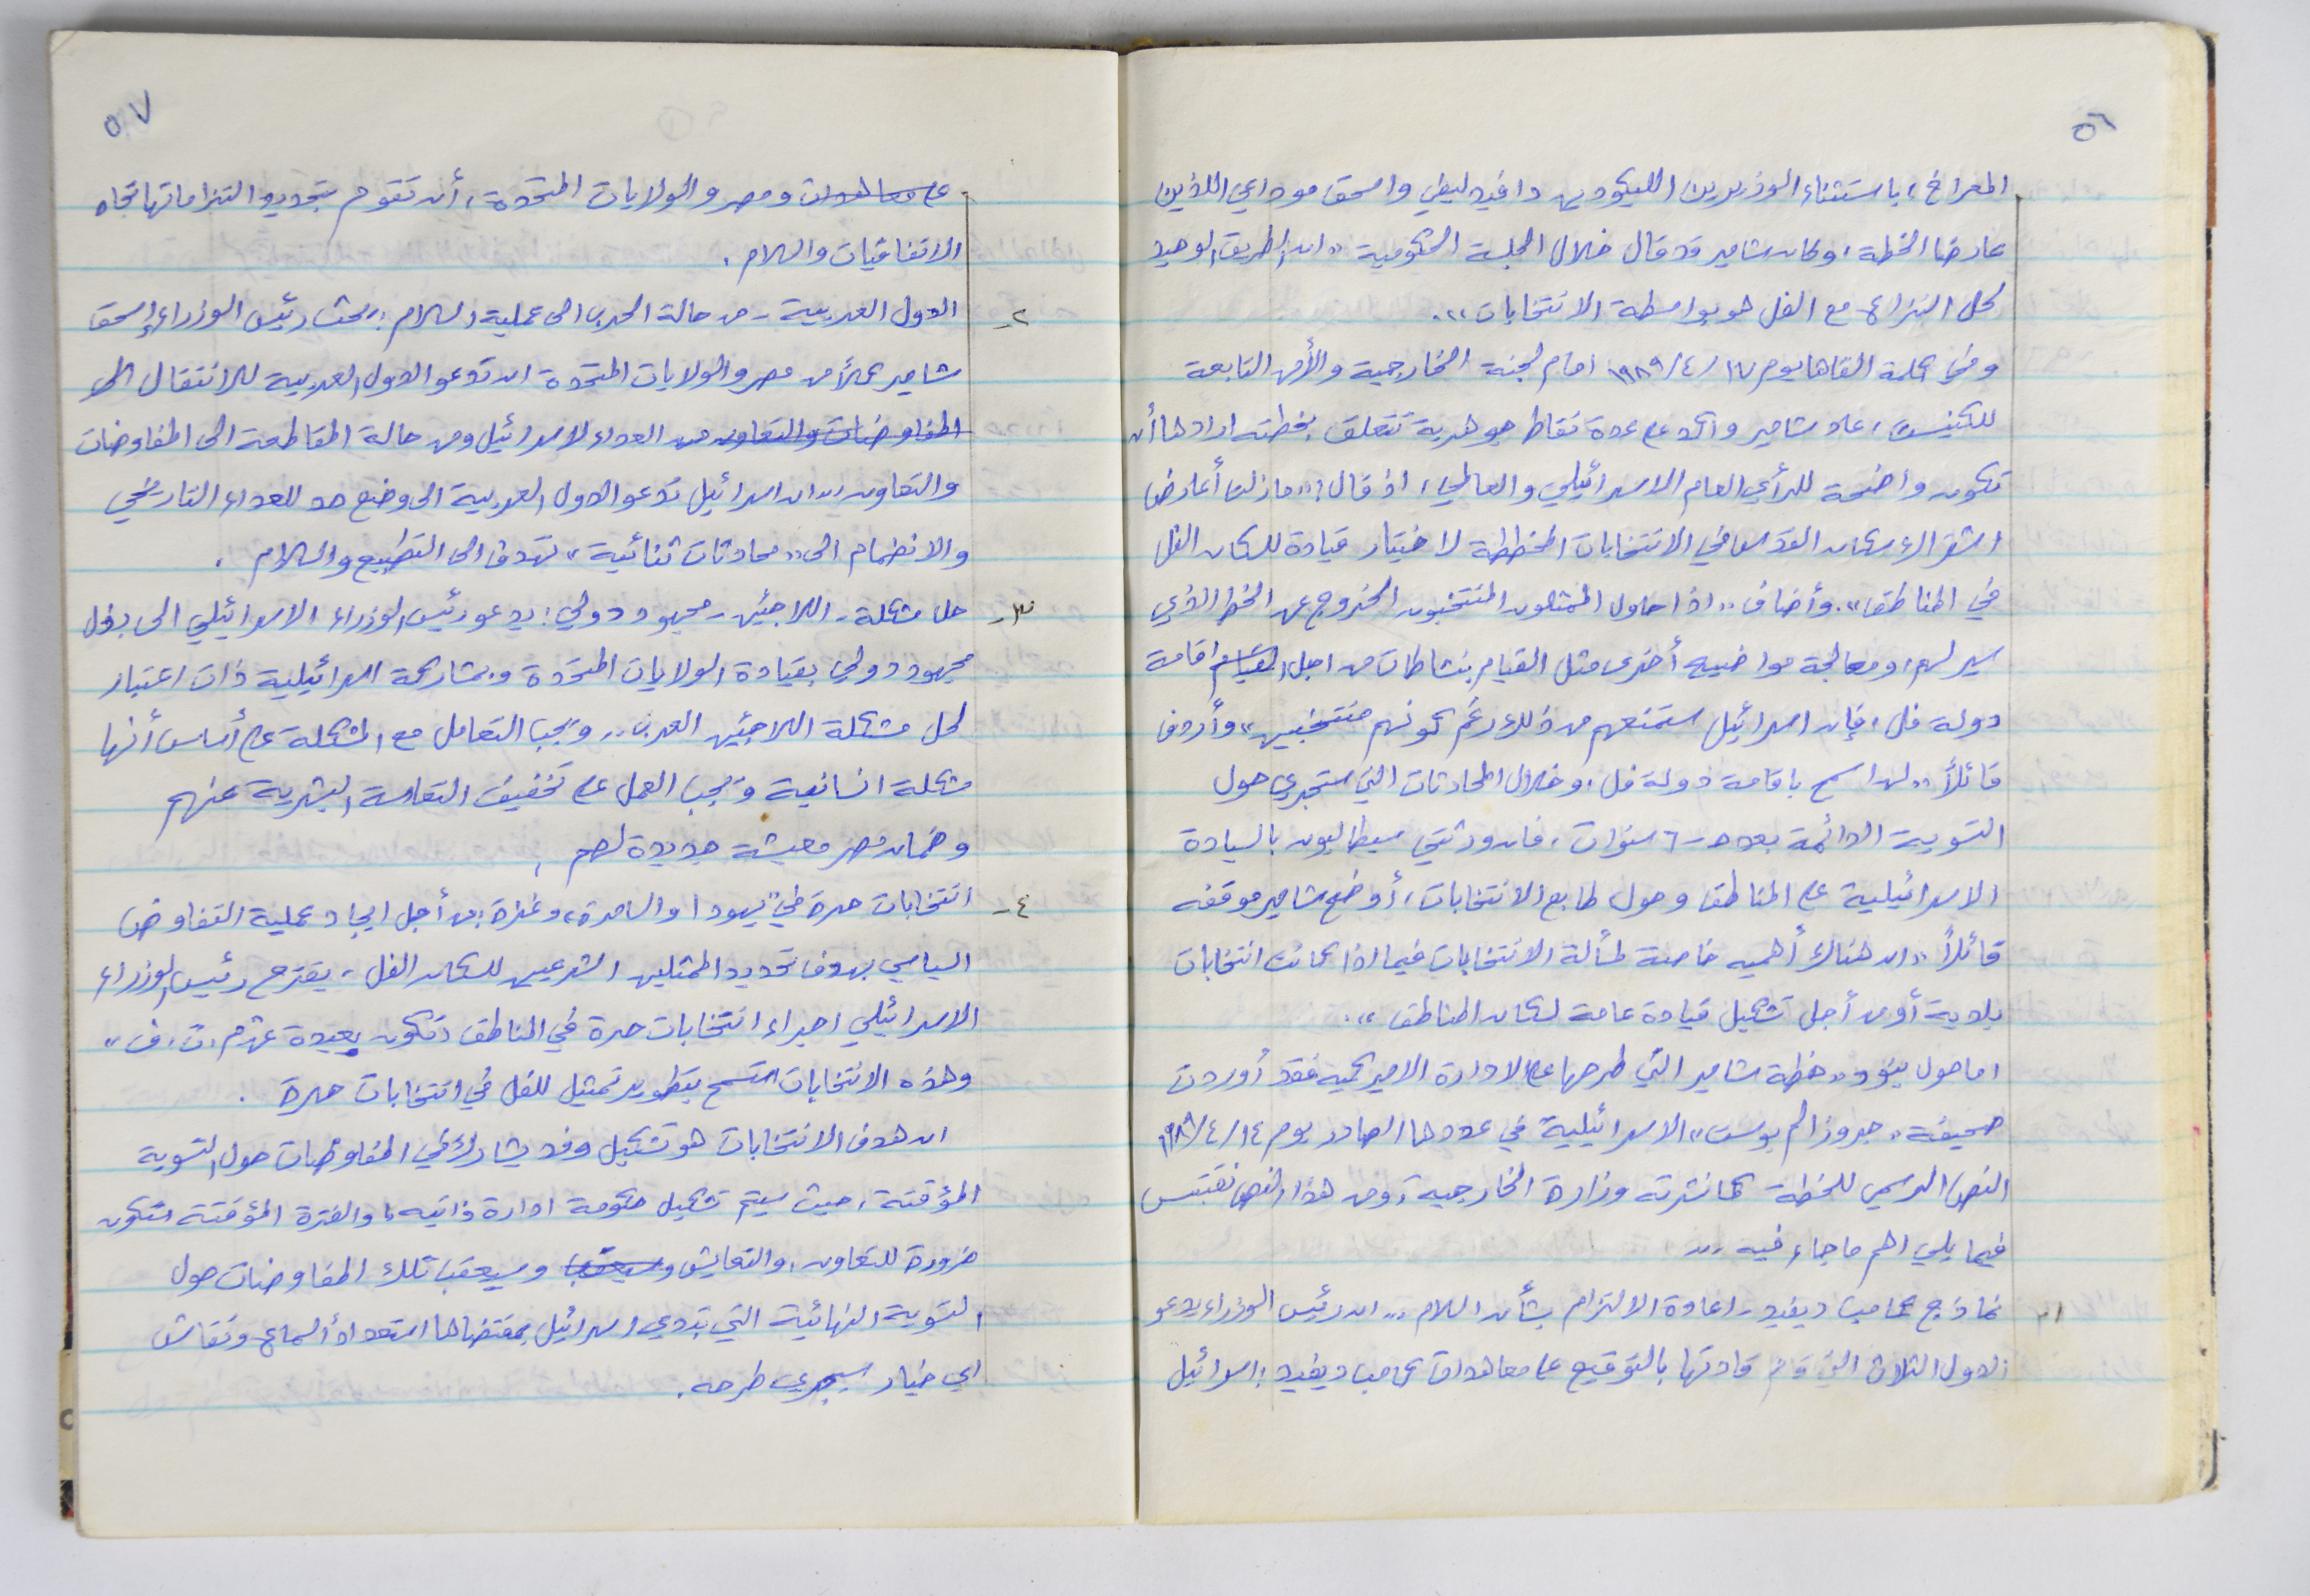 ٥٦
المعراخ، باستثناء الوزيرين الليكوديين دافيد ليفي واسحق موداعي اللذين
عارضا الخطة، وكان شامير قد قال خلال الجلسة الحكومية "ان الطريق الوحيد
لحل النزاع مع الفل هو بواسطة الانتخابات".
وفي كلمة القاها يوم ١٧/٤/١٩٨٩ امام لجنة الخارجية والأمن التابعة
للكنيست، عاد شامير واكد على عدة نقاط جوهرية تتعلق بخطته ارادها أن
تكون واضحة للرأي العام الاسرائيلي والعالمي، اذ قال: "ما زلت أعارض
اشتراك سكان القدس في الانتخابات المخططة لاختيار قيادة للسكان الفل
في المناطق". وأضاف "اذا حاول الممثلون المنتخبون الخروج عن الخط الذي
سير لهم، ومعالجة مواضيع أخرى مثل القيام بنشاطات من اجل القيام اقامة
دولة فل، فإن اسرائيل ستمنعهم من ذلك رغم كونهم منتخبين" وأردف
قائلاً "لن اسمح باقامة دولة فل، وخلال المحادثات التي ستجري حول
التسوية الدائمة بعد ٥-٦ سنوات، فان ورثتي سيطالبون بالسيادة
الاسرائيلية على المناطق وحول طابع الانتخابات، أوضح شامير موقفه
قائلاً "ان هناك أهميه خاصة لمسألة الانتخابات فيما اذا كانت انتخابات
بلدية أو من أجل تشكيل قيادة عامة لسكان المناطق".
اما حول بنود "خطة شامير التي طرحها على الادارة الاميركيه فقد أوردت
صحيفة "جيروزالم بوست" الاسرائيلية في عددها الصادر يوم ١٤/٤/١٩٨٩
النص الرسمي للخطة كما نشرته وزارة الخارجية، ومن هذا النص نقتبس
فيما يلي اهم ما جاء فيه ..
١- نماذج كامب ديفيد - اعادة الالتزام بشأن السلام .. ان رئيس الوزراء يدعو
الدول الثلاث التي قام قادتها بالتوقيع على معاهدات كامب ديفيد: اسرائيل
٥٧
على معاهدات ومصر والولايات المتحدة، أن تقوم بتجديد التزاماتها تجاه
الاتفاقيات والسلام.
٢- الدول العربية - من حالة الحرب الى عملية السلام: يحث رئيس الوزراء إسحق
شامير كلاً من مصر والولايات المتحدة ان تدعو الدول العربية للانتقال الى
المفاوضات والتعاون من العداء لاسرائيل ومن حالة المقاطعة الى المفاوضات
والتعاون، ان اسرائيل تدعو الدول العربية الى وضع حد للعداء التاريخي
والانضمام الى "محادثات ثنائية" تهدف الى التطبيع والسلام.
٣- حل مشكلة - اللاجئين - مجهود دولي: يدعو رئيس الوزراء الاسرائيلي الى بذل
مجهود دولي بقيادة الولايات المتحدة وبمشاركة اسرائيلية ذات اعتبار
لحل مشكلة اللاجئين العرب .. ويجب التعامل مع المشكلة على أساس أنها
مشكلة انسانية ويجب العمل على تخفيف التعاسة البشرية عنهم
وضمان معيشة جديدة لهم.
٤- انتخابات حرة في "يهودا والسامرة" وغزة: من أجل ايجاد عملية التفاوض
السياسي بهدف تحديد الممثلين الشرعيين للسكان الفل، يقترح رئيس الوزراء
الاسرائيلي اجراء انتخابات حرة في المناطق "تكون بعيدة عن م.ت.ف"
وهذه الانتخابات ستسمح بتطوير تمثيل للفل في انتخابات حرة.
ان هدف الانتخابات هو تشكيل وفد يشارك في المفاوضات حول التسوية
المؤقتة، حيث سيتم تشكيل حكومة ادارة ذاتيه، والفترة المؤقتة ستكون
ضرورة للتعاون، والتعايش وسيعقب وسيعقب تلك المفاوضات حول
التسوية النهائية التي تبدي اسرائيل بمقتضاها استعداداً لسماع ونقاش
اي خيار سيجري طرحه.